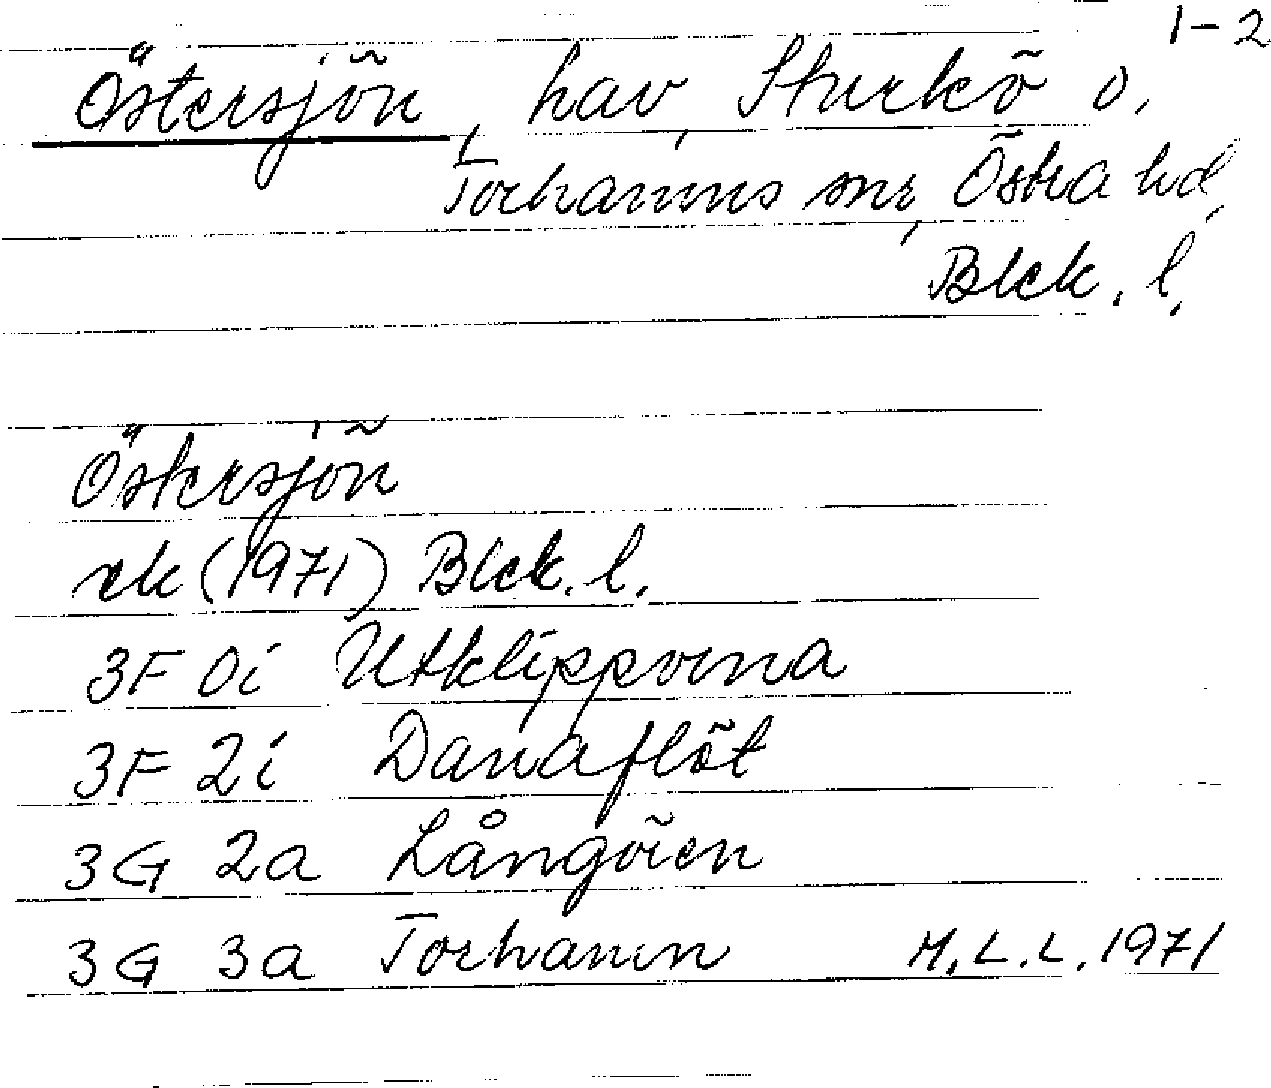 1-2
Östersjön, hav, Sturkö o.
Torhamns snr, Östra hd,
Blek. l.
Östersjön
ek (1971) Blek. l.
3F 0i Utklipporna
3F 2i Danaflöt
3G 2a Långören
3G 3a Torhamn M.L.L. 1971